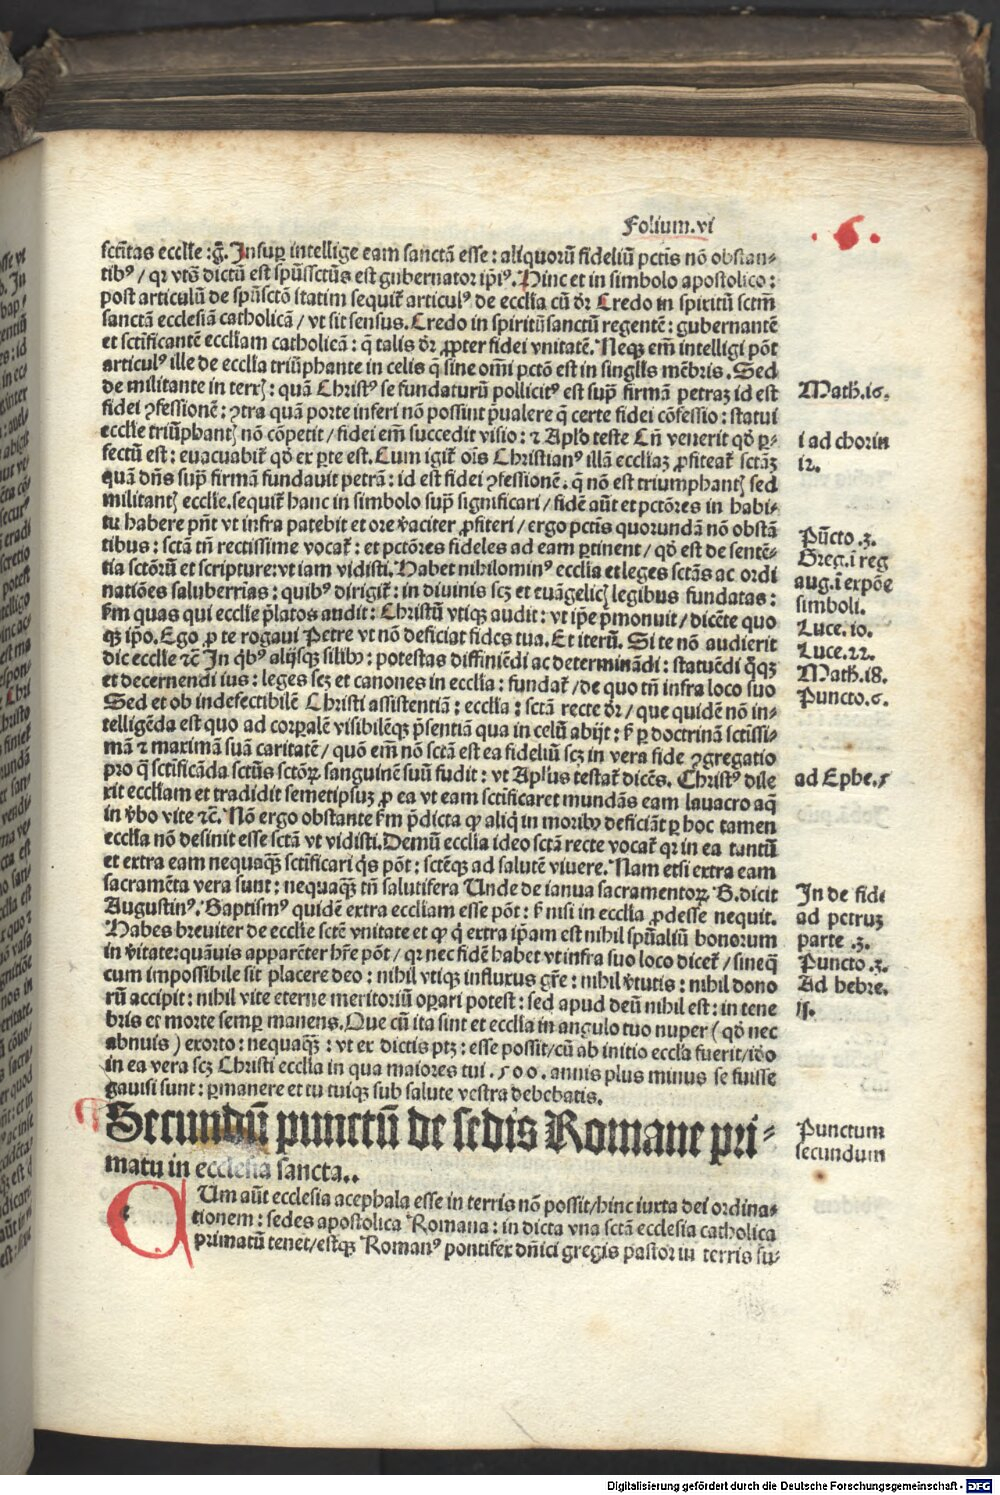 Folium.vi
.6.
sctitas ecclie :g̃. Insup̲ intellige eam sanctã esse : aliquorũ fideliũ pctis nõ obstan⸗
tibꝰ / qꝛ vtõs dictũ est spũssctũs est gubernator ip̃iꝰ. Hinc et in simbolo apostolico :
post articulũ de spũsctõ statim sequit̃ articulꝰ de ecclia cũ dr̃ Credo in spiritũ sctm̃
sanctã ecclesiã catholicã / vt sit sensus. Credo in spiritũ sanctũ regentẽ : gubernantẽ
et sctificantẽ eccliam catholicã : q̃ talis dr̃ ꝓpter fidei vnitatẽ. Neqꝫ em̃ intelligi põt
articulꝰ ille de ecclia triũphante in celis q̃ sine om̃i pctõ est in singlis mẽbris. Sed
de militante in terrꝭ : quã Christꝰ se fundaturũ pollicitꝰ est sup̲ firmã petraꝫ id est
fidei ꝯfessionẽ : ꝯtra quã porte inferi nõ possint p̃ualere q̃ certe fidei cõfessio : statui
ecclie triũphantꝭ nõ cõpetit / fidei em̃ succedit visio : ⁊ Aplo teste Cũ venerit qđ ꝑ⸗
fectũ est : euacuabit̃ qđ ex ꝑte est. Cum igit̃ ois Christianꝰ illã eccliaꝫ ꝓfiteat̃ sctãꝫ
quã dñs sup̲ firmã fundauit petrã : id est fidei ꝯfessionẽ. q̃ nõ est triumphantꝭ sed
militantꝭ ecclie. sequit̃ hanc in simbolo sup̲ significari / fidẽ aũt et pctõres in habi⸗
tu habere pñt vt infra patebit et ore v̾aciter ꝓfiteri / ergo pctis quorundã nõ obstã
tibus : sctã tñ rectissime vocat̃ : et pctõres fideles ad eam ꝑtinent / qđ est de sentẽ⸗
tia sctõrũ et scripture : vt iam vidisti. Habet nihilominꝰ ecclia et leges sctãs ac ordi
natiões saluberrias : quibꝰ dirigit̃ : in diuinis scꝫ et euãgelicꝭ legibus fundatas :
km̃ quas qui ecclie p̃latos audit : Christũ vtiqꝫ audit : vt ip̃e p̃monuit / dicẽte quo
qꝫ ip̃o. Ego ꝓ te rogaui Petre vt nõ deficiat fides tua. Et iterũ. Si te nõ audierit
dic ecclie ⁊c̃ In q̃bꝰ alijsqꝫ silibꝫ : potestas diffiniẽdi ac determinãdi : statuẽdi q̃qꝫ
et decernendi ius : leges scꝫ et canones in ecclia : fundat̃ / de quo tñ infra loco suo
Sed et ob indefectibilẽ Christi assistentiã : ecclia : sctã recte dr̃ / que quidẽ nõ in⸗
telligẽda est quo ad corꝑalẽ visibilẽqꝫ p̃sentiã qua in celũ abijt : s̃ ꝑ doctrinã sctissi⸗
mã ⁊ maximã suã caritatẽ / quõ em̃ nõ sctã est ea fideliũ scꝫ in vera fide ꝯgregatio
pro q̃ sctificãda sctũs sctõꝝ sanguinẽ suũ fudit : vt Aplus testat̃ dicẽs. Christꝰ dile
xit eccliam et tradidit semetipsuꝫ ꝓ ea vt eam sctificaret mundãs eam lauacro aq̃
in v̾bo vite ⁊c̃. Nõ ergo obstante km̃ p̃dicta ꝙ aliq̃ in moribꝫ deficiãt ꝑ hoc tamen
ecclia nõ desinit esse sctã vt vidisti. Demũ ecclia ideo sctã recte vocat̃ qꝛ in ea tantũ
et extra eam nequaꝙ̃ sctificari q̃s põt : sctẽqꝫ ad salutẽ viuere. Nam etsi extra eam
sacramẽta vera sunt : nequaꝙ̃ tñ salutifera Unde de ianua sacramentoꝝ. B. dicit
Augustinꝰ. Baptismꝰ quidẽ extra eccliam esse põt : s̃ nisi in ecclia ꝓdesse nequit.
Habes breuiter de ecclie sctẽ vnitate et ꝙ q̃ extra ip̃am est nihil spũaliũ bonorum
in v̾itate : quãuis apparẽter hr̃e põt / qꝛ nec fidẽ habet vt infra suo loco dicet̃ / sine q̃
cum impossibile sit placere deo : nihil vtiqꝫ influxus gr̃e : nihil v̾tutis : nihil dono
rũ accipit : nihil vite eterne meritoriũ oꝑari potest : sed apud deũ nihil est : in tene
bris et morte semꝑ manens. Que cũ ita sint et ecclia in angulo tuo nuper ( qđ nec
abnuis ) exorto : nequaꝙ̃ : vt ex dictis ptꝫ : esse possit / cũ ab initio eccla fuerit / iđo
in ea vera scꝫ Christi ecclia in qua maiores tui . 500 . annis plus minus se fuisse
gauisi sunt : ꝑmanere et tu tuiqꝫ sub salute vestra debebatis.
Secundũ punctũ de sedis Romane pri⸗
matu in ecclesia sancta..
Um aũt ecclesia acephala esse in terris nõ possit / hinc iuxta dei ordina⸗
tionem : sedes apostolica Romana : in dicta vna sctã ecclesia catholica
primatũ tenet / estqꝫ Romanꝰ pontifex dñici gregis pastor in terris su⸗
Math.16.
i ad chorin
12.
Pũcto .3.
Greg.ĩ reg
aug.ĩ expõe
simboli.
Luce.10.
Luce.22.
Math.18.
Puncto.6.
ad Ephe.5
In de fide
ad petruꝫ
parte .3.
Puncto .3.
Ad hebre.
11.
Punctum
secundum
Digitalisierung gefördert durch die Deutsche Forschungsgemeinschaft - DFG